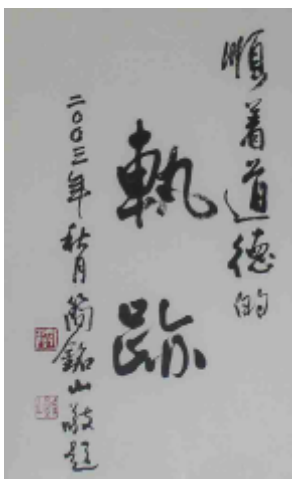 順着道德的
軌跡
二〇〇三年秋月簡銘山敬題